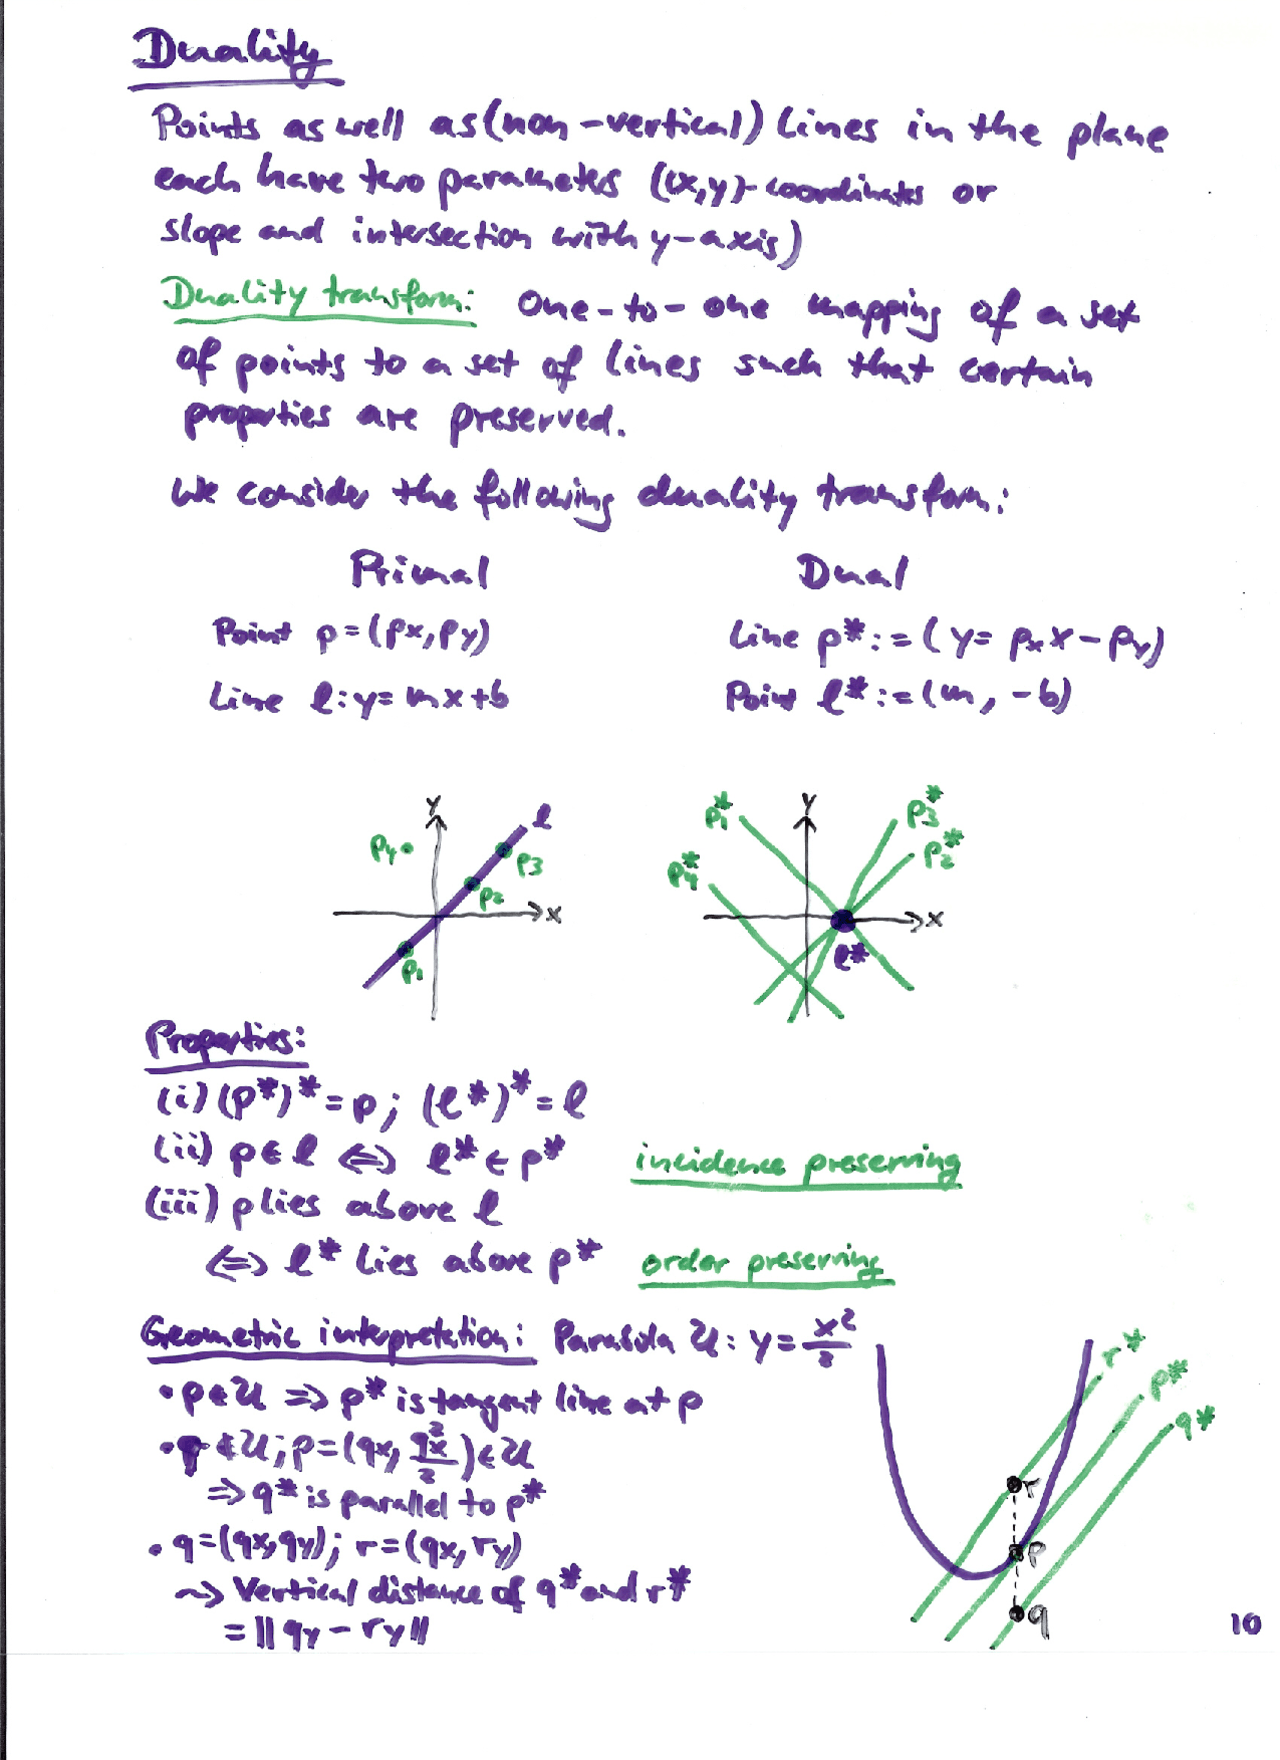 Duality
Points as well as (non-vertical) lines in the plane
each have two parameters ((x,y)-coordinates or
slope and intersection with y-axis)
Duality transform: One-to-one mapping of a set
of points to a set of lines such that certain
properties are preserved.
We consider the following duality transform:
Primal Dual
Point p=(px,py) Line p*:=(y=pxx-py)
Line ℓ:y=mx+b Point ℓ*:=(m,-b)
y ℓ p4 p3 p2 x p1
y p1* p3* p2* p4* x ℓ*
Properties:
(i) (p*)*=p; (ℓ*)*=ℓ
(ii) p∈ℓ ⇔ ℓ*∈p* incidence preserving
(iii) p lies above ℓ
⇔ ℓ* lies above p* order preserving
Geometric interpretation: Parabola U: y=x²/2
• p∈U ⇒ p* is tangent line at p
• q∉U; p=(qx, qx²/2)∈U
⇒ q* is parallel to p*
• q=(qx,qy); r=(qx,ry)
⤳ Vertical distance of q* and r*
=||qy-ry||
r* p* q* r p q
10